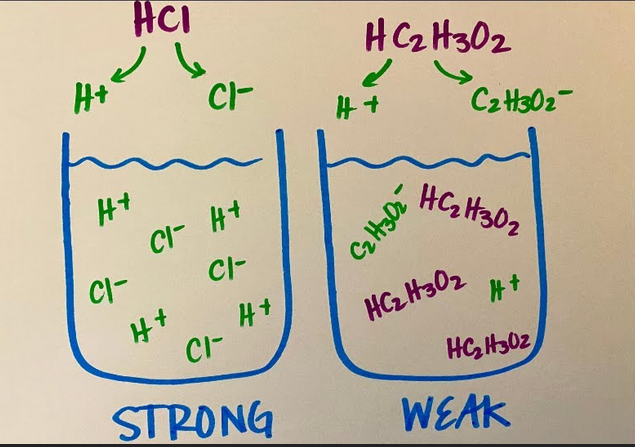 HCl
H+ Cl-
H+
Cl- H+
Cl- Cl-
H+ H+
Cl-
STRONG
HC2H3O2
H+ C2H3O2-
C2H3O2- HC2H3O2
HC2H3O2 H+
HC2H3O2
WEAK